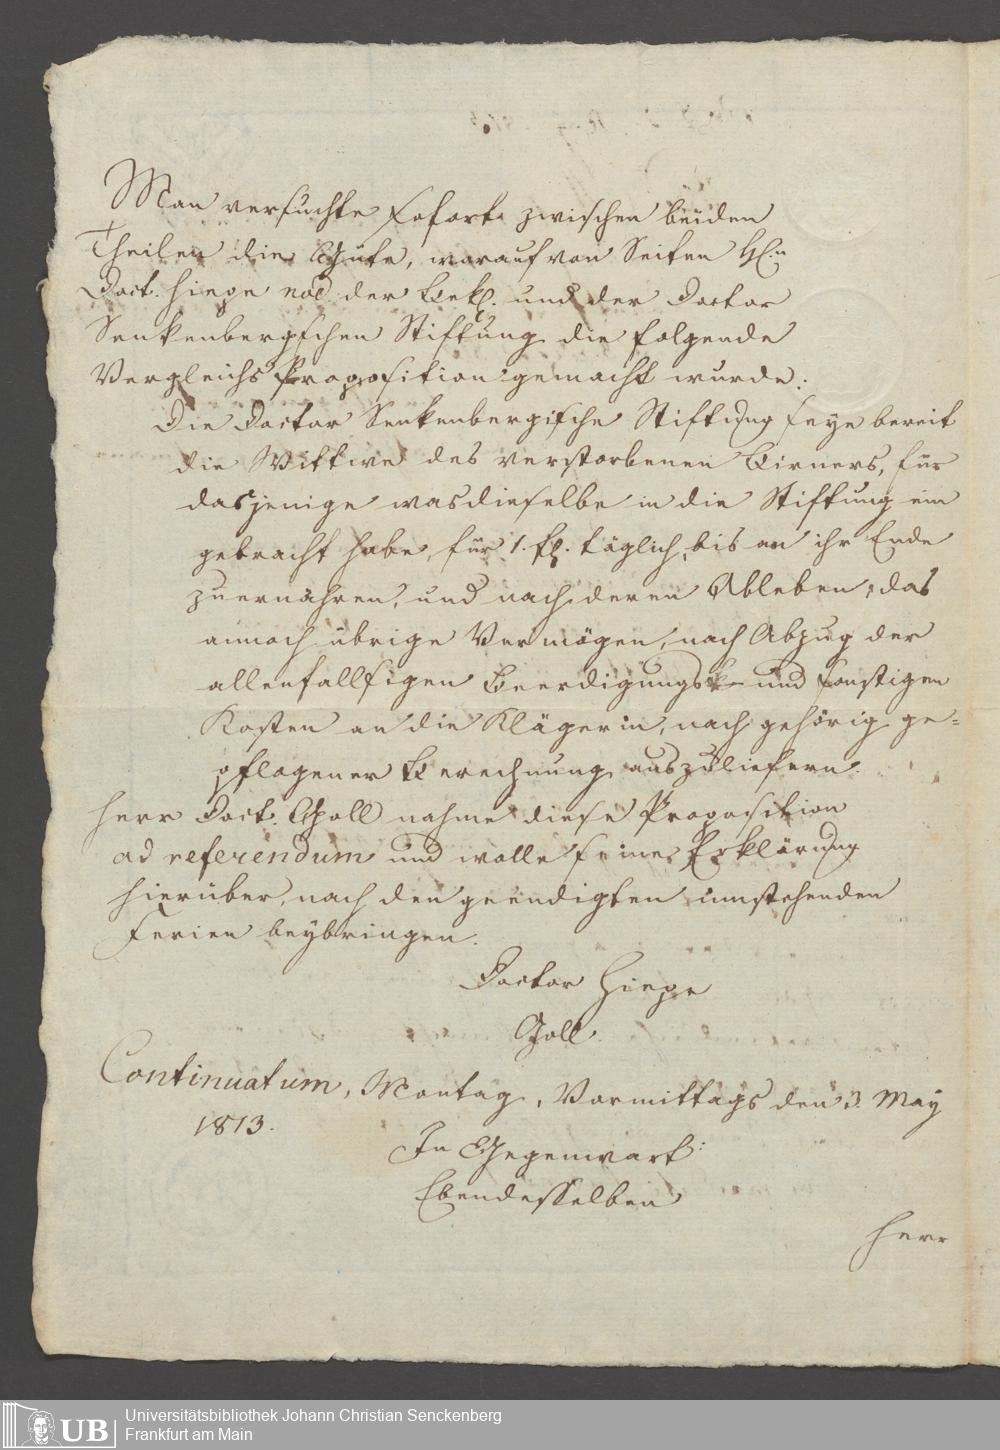 Man versuchte sofort zwischen beiden
Theilen die Güte, worauf von Seiten H.n
Doct. Hiepe noe der Bekl. und der Doctor
Senkenbergischen Stiftung die folgende
Vergleichs Proposition gemacht wurde:
Die Doctor Senkenbergische Stiftung seye bereit
die Wittwe des verstorbenen Birners, für
dasjenige was dieselbe in die Stiftung ein
gebracht habe, für 1. fl. täglich, bis an ihr Ende
zu ernähren, und nach deren Ableben, das
annoch übrige Vermögen, nach Abzug der
allenfallsigen Beerdigungs und sonstigen
Kosten an die Klägerin, nach gehörig ge=
pflogener Berechnung auszuliefern.
Herr Doct. Goll nahme diese Proposition
ad referendum und wolle seine Erklärung
hierüber, nach den geendigten umstehenden
Ferien beybringen.
Doctor Hiepe
Goll.
Continuatum, Montag, Vormittags den 3. May
1813.
In Gegenwart:
Ebendesselben
Herr
UB Universitätsbibliothek Johann Christian Senckenberg
Frankfurt am Main